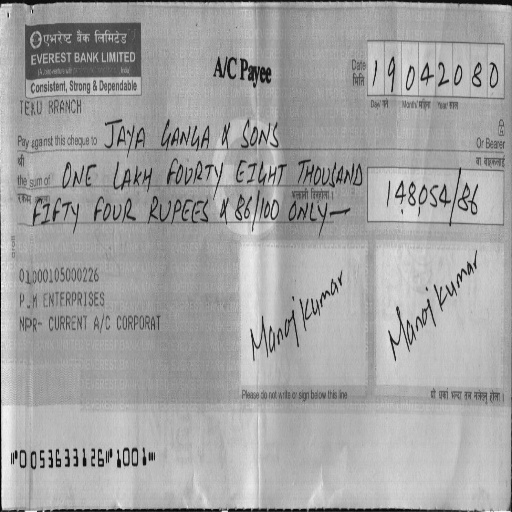 एभरेष्ट बैंक लिमिटेड
EVEREST BANK LIMITED
Consistent, Strong & Dependable
TEKU BRANCH
A/C Payee
Date 19042080
मिति
Day/ गते Month/ महिना Year/ साल
Pay against this cheque to JAYA GANGA & SONS
Or Bearer
श्री
वा वाहकलाई
the sum of ONE LAKH FOURTY EIGHT THOUSAND
रकम
FIFTY FOUR RUPEES & 86/100 ONLY—
148,054/86
01000105000226
P.M ENTERPRISES
NPR- CURRENT A/C CORPORAT
Manoj Kumar
Manoj Kumar
Please do not write or sign below this line
⑈00536331 26⑈ 1001⑈